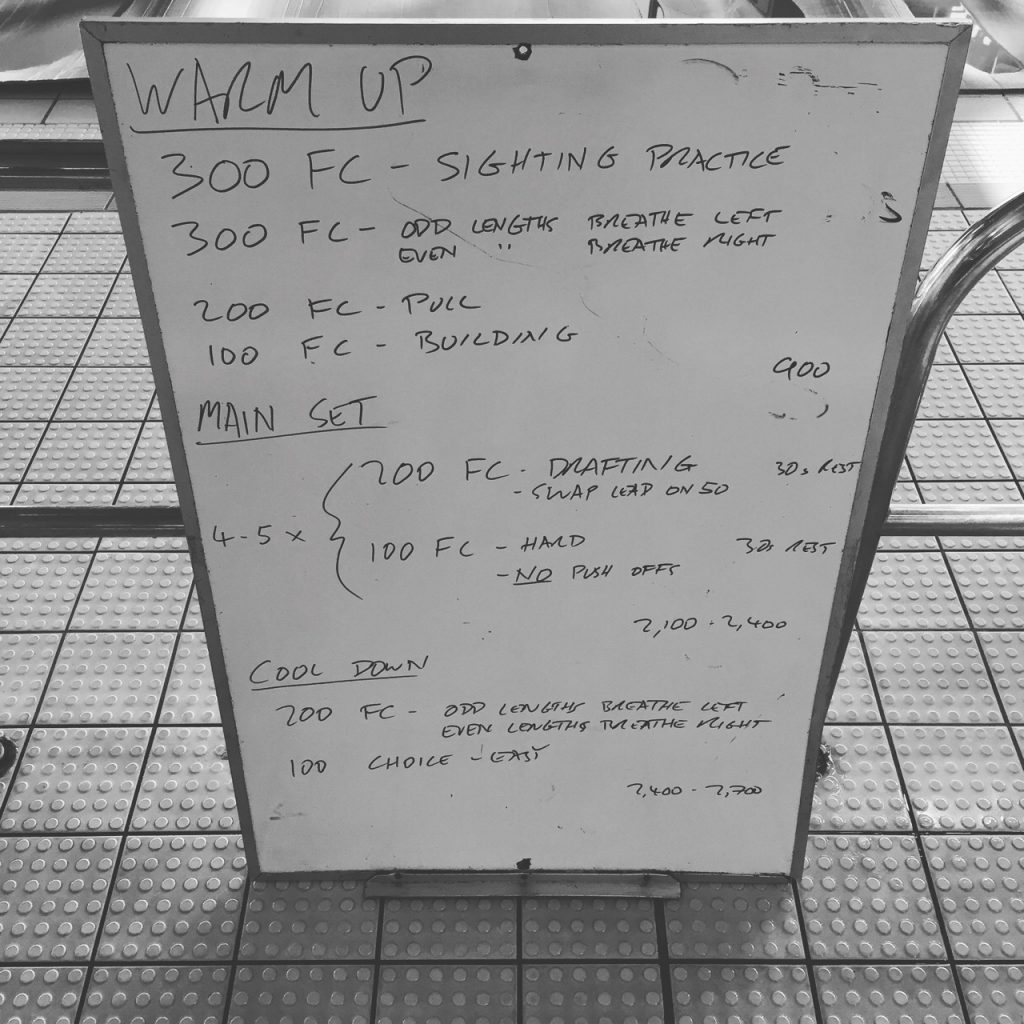 WARM UP
300 FC - SIGHTING PRACTICE
300 FC - ODD LENGTHS BREATHE LEFT
EVEN " BREATHE RIGHT
200 FC - PULL
100 FC - BUILDING
900
MAIN SET
4-5 x
200 FC - DRAFTING 30s REST
- SWAP LEAD ON 50
100 FC - HARD 30s REST
- NO PUSH OFFS
2,100 - 2,400
COOL DOWN
200 FC - ODD LENGTHS BREATHE LEFT
EVEN LENGTHS BREATHE RIGHT
100 CHOICE - EASY
2,400 - 2,700